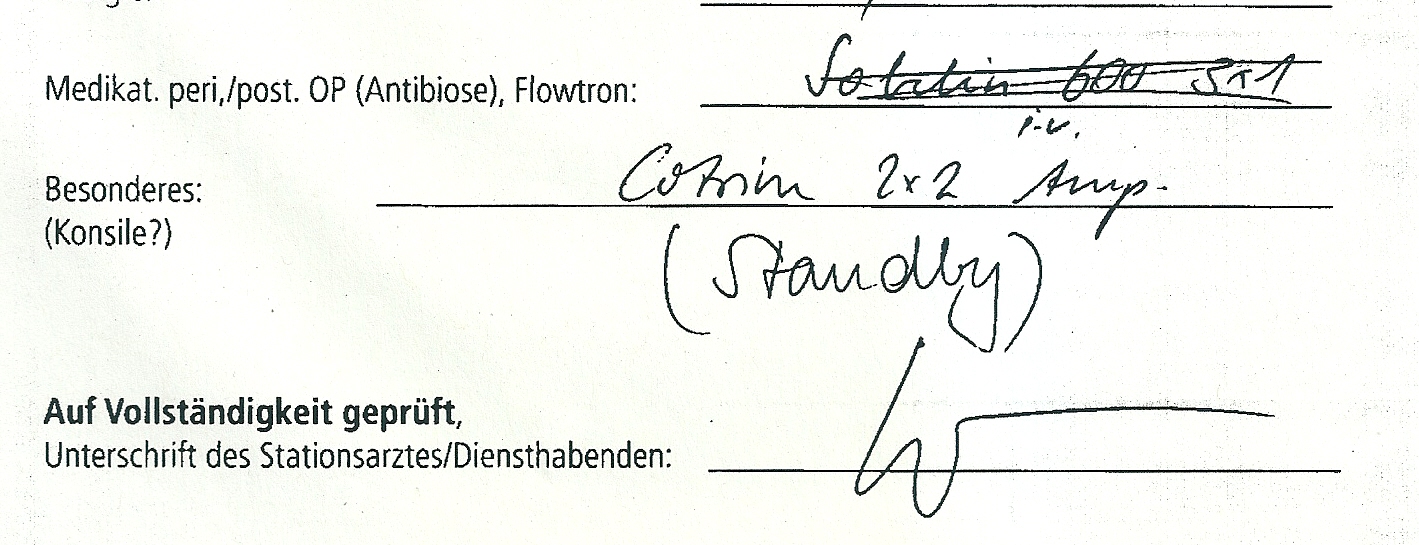 Medikat. peri,/post. OP (Antibiose), Flowtron: 600 3x1
i.v.
Besonderes: Cotrim 2x2 Amp.
(Konsile?)
(Standby)
Auf Vollständigkeit geprüft,
Unterschrift des Stationsarztes/Diensthabenden: